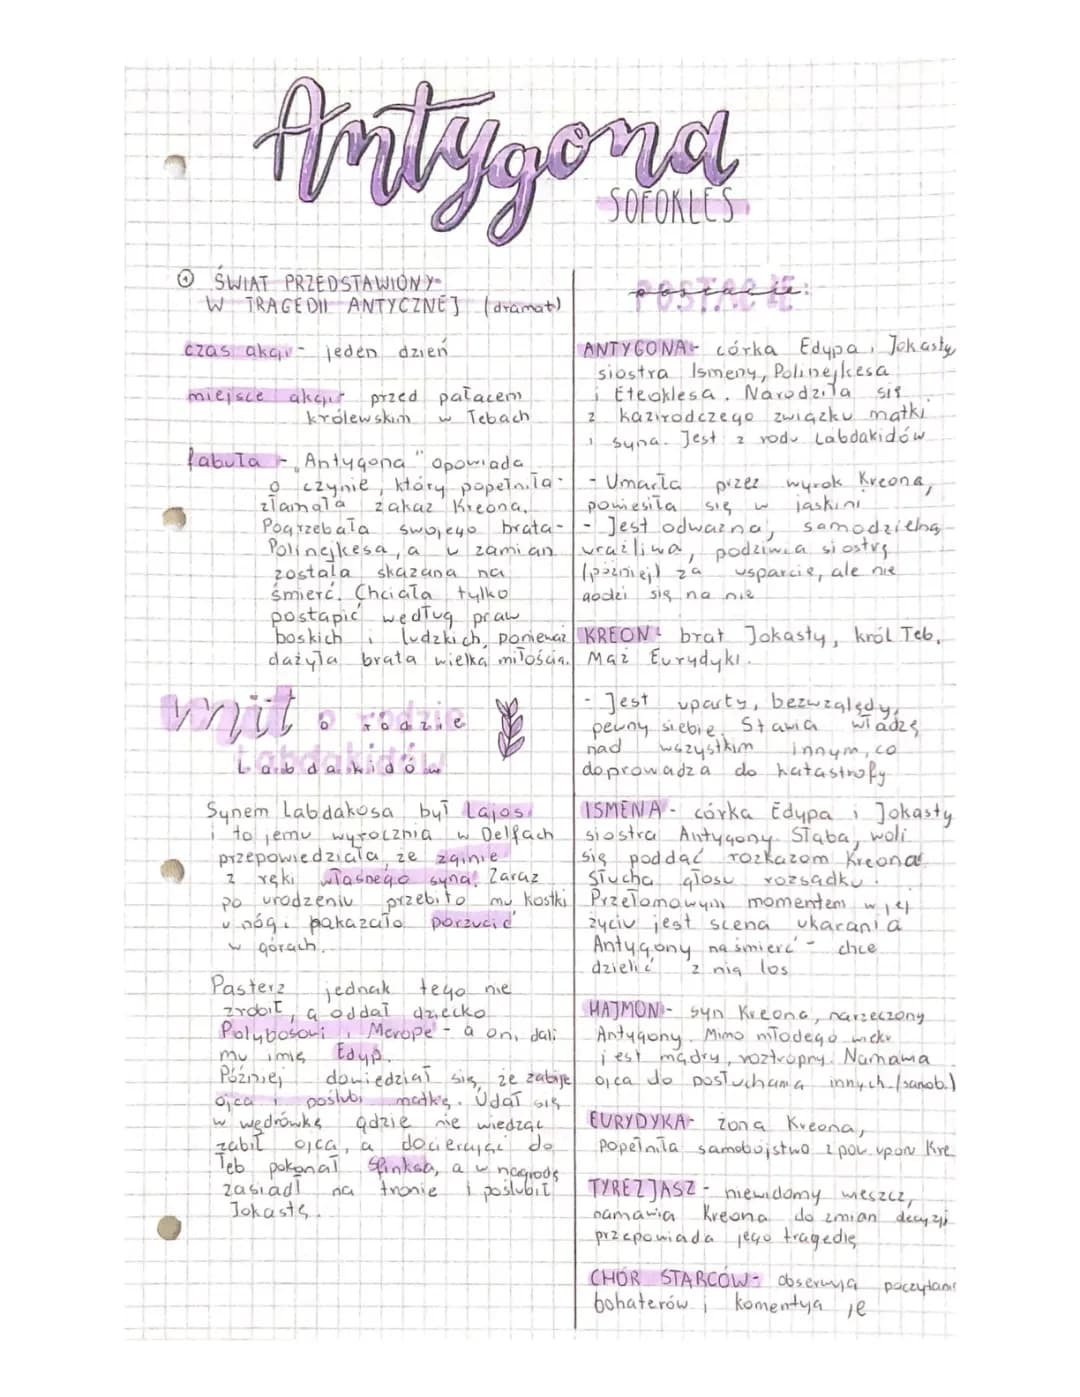 Antygona
SOFOKLES
① ŚWIAT PRZEDSTAWIONY
W TRAGEDII ANTYCZNEJ (dramat)
czas akcji - jeden dzień
miejsce akcji - przed pałacem
królewskim w Tebach
fabuła - "Antygona" opowiada
o czynie, który popełniła -
złamała zakaz Kreona.
Pogrzebała swojego brata -
Polinejkesa, a w zamian
została skazana na
śmierć. Chciała tylko
postąpić według praw
boskich i ludzkich, ponieważ
dażyła brata wielką miłością.
mit o rodzie
Labdakidów
Synem Labdakosa był Lajos
i to jemu wyrocznia w Delfach
przepowiedziała, że zginie
z ręki własnego syna! Zaraz
po urodzeniu przebito mu kostki
u nóg i pakazało porzucić
w górach.
Pasterz jednak tego nie
zrobił, a oddał dziecko
Polybosowi i Merope - a oni dali
mu imię Edyp.
Później dowiedział się, że zabije
ojca i poślubi matkę. Udał się
w wędrówkę gdzie nie wiedząc
zabił ojca, a docierając do
Teb pokonał Sfinksa, a w nagrodę
zasiadł na tronie i poślubił
Jokastę.
POSTACIE:
ANTYGONA - córka Edypa i Jokasty,
siostra Ismeny, Polinejkesa
i Eteoklesa. Narodziła się
z kazirodczego związku matki
i syna. Jest z rodu Labdakidów
- Umarła przez wyrok Kreona,
powiesiła się w jaskini
- Jest odważna, samodzielna
wrażliwa, podziwia siostrę
(później) za wsparcie, ale nie
godzi się na nie
KREON - brat Jokasty, król Teb.
Mąż Eurydyki.
- Jest uparty, bezwzględy,
pewny siebie. Stawia władzę
nad wszystkim innym, co
doprowadza do katastrofy
ISMENA - córka Edypa i Jokasty
siostra Antygony. Słaba, woli
się poddać rozkazom Kreona.
Słucha głosu rozsądku.
Przełomowym momentem w jej
życiu jest scena ukarania
Antygony na śmierć - chce
dzielić z nią los
HAJMON - syn Kreona, narzeczony
Antygony. Mimo młodego wieku
jest mądry, roztropny. Namawia
ojca do posłuchania innych (samob.)
EURYDYKA - żona Kreona,
popełniła samobójstwo z pow. upor. Kre
TYREZJASZ - niewidomy wieszcz,
namawia Kreona do zmian decyzji
przepowiada jego tragedię
CHÓR STARCÓW - obserwują poczynani
bohaterów i komentują je